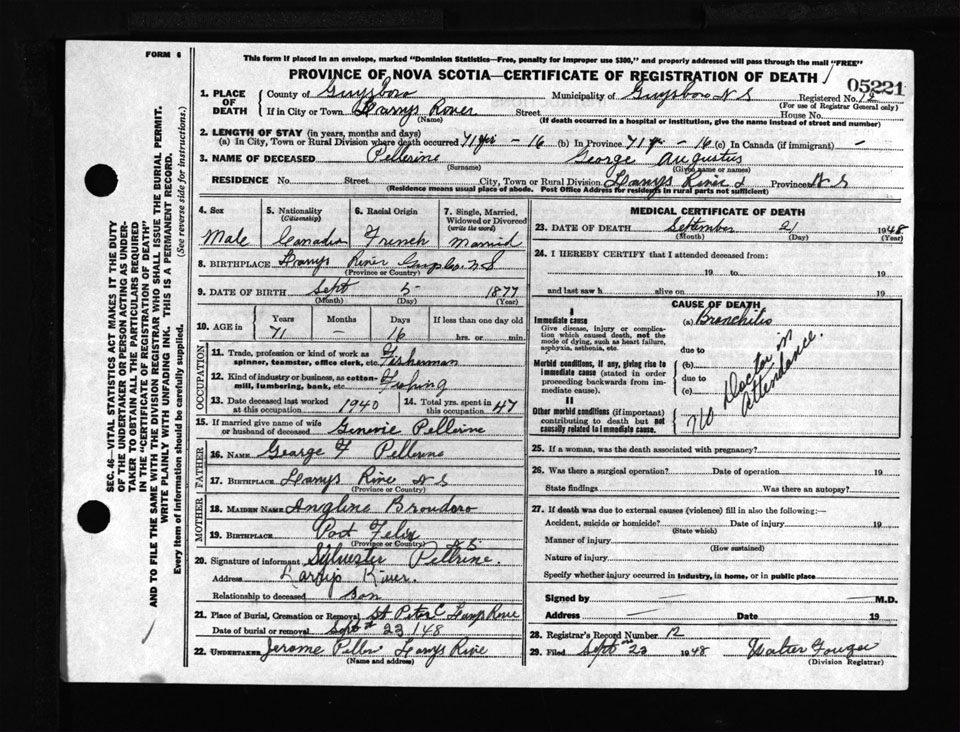 FORM 6
This form if placed in an envelope, marked "Dominion Statistics—Free, penalty for improper use $300," and properly addressed will pass through the mail "FREE"
PROVINCE OF NOVA SCOTIA—CERTIFICATE OF REGISTRATION OF DEATH
05221
1. PLACE OF DEATH
County of Guysboro Municipality of Guysboro N S Registered No. 12
(For use of Registrar General only)
If in City or Town Larrys River Street House No.
(Name) (If death occurred in a hospital or institution, give the name instead of street and number)
2. LENGTH OF STAY (in years, months and days)
(a) In City, Town or Rural Division where death occurred 71 yr – 16 (b) In Province 71 yr – 16 (c) In Canada (if immigrant) –
3. NAME OF DECEASED Pellerine George Augustus
(Surname) (Given name or names)
RESIDENCE No. Street City, Town or Rural Division Larrys River Province N S
(Residence means usual place of abode. Post Office Address for residents in rural parts not sufficient)
4. Sex
Male
5. Nationality
(Citizenship)
Canadian
6. Racial Origin
French
7. Single, Married, Widowed or Divorced
(write the word)
Married
8. BIRTHPLACE Larrys River Guysboro N S
(Province or Country)
9. DATE OF BIRTH Sept 5 1877
(Month) (Day) (Year)
10. AGE in Years Months Days If less than one day old
71 – 16 hrs. or min.
OCCUPATION
11. Trade, profession or kind of work as spinner, teamster, office clerk, etc. Fisherman
12. Kind of industry or business, as cotton-mill, lumbering, bank, etc. Fishing
13. Date deceased last worked at this occupation 1940
14. Total yrs. spent in this occupation 47
15. If married give name of wife or husband of deceased Genevie Pellerine
FATHER
16. NAME George F Pellerine
17. BIRTHPLACE Larrys River N S
(Province or Country)
MOTHER
18. MAIDEN NAME Angline
19. BIRTHPLACE Port Felix N S
(Province or Country)
20. Signature of informant Sylvester Pellrine
Address Larrys River.
Relationship to deceased son
21. Place of Burial, Cremation or Removal St Peters C Larrys River
Date of burial or removal Sept 23 / 48
22. UNDERTAKER Jerome Larrys River
(Name and address)
MEDICAL CERTIFICATE OF DEATH
23. DATE OF DEATH September 21 1948
(Month) (Day) (Year)
24. I HEREBY CERTIFY that I attended deceased from:
19 to 19
and last saw h alive on 19
CAUSE OF DEATH
I
Immediate cause
Give disease, injury or complication which caused death, not the mode of dying, such as heart failure, asphyxia, asthenia, etc.
(a) Bronchitis
due to
Morbid conditions, if any, giving rise to immediate cause (stated in order proceeding backwards from immediate cause).
(b)
due to
(c)
II
Other morbid conditions (if important) contributing to death but not causally related to immediate cause.
No Doctor in attendance.
25. If a woman, was the death associated with pregnancy?
26. Was there a surgical operation? Date of operation 19
State findings Was there an autopsy?
27. If death was due to external causes (violence) fill in also the following:—
Accident, suicide or homicide? Date of injury 19
(State which)
Manner of injury
(How sustained)
Nature of injury
Specify whether injury occurred in industry, in home, or in public place
Signed by M.D.
Address Date 19
28. Registrar's Record Number 12
29. Filed Sept 23 1948 Walter Fougere
(Division Registrar)
SEC. 46—VITAL STATISTICS ACT MAKES IT THE DUTY
OF THE UNDERTAKER OR PERSON ACTING AS UNDER-
TAKER TO OBTAIN ALL THE PARTICULARS REQUIRED
IN THE "CERTIFICATE OF REGISTRATION OF DEATH"
AND TO FILE THE SAME WITH THE DIVISION REGISTRAR WHO SHALL ISSUE THE BURIAL PERMIT.
WRITE PLAINLY WITH UNFADING INK. THIS IS A PERMANENT RECORD.
Every item of information should be carefully supplied. (See reverse side for instructions.)